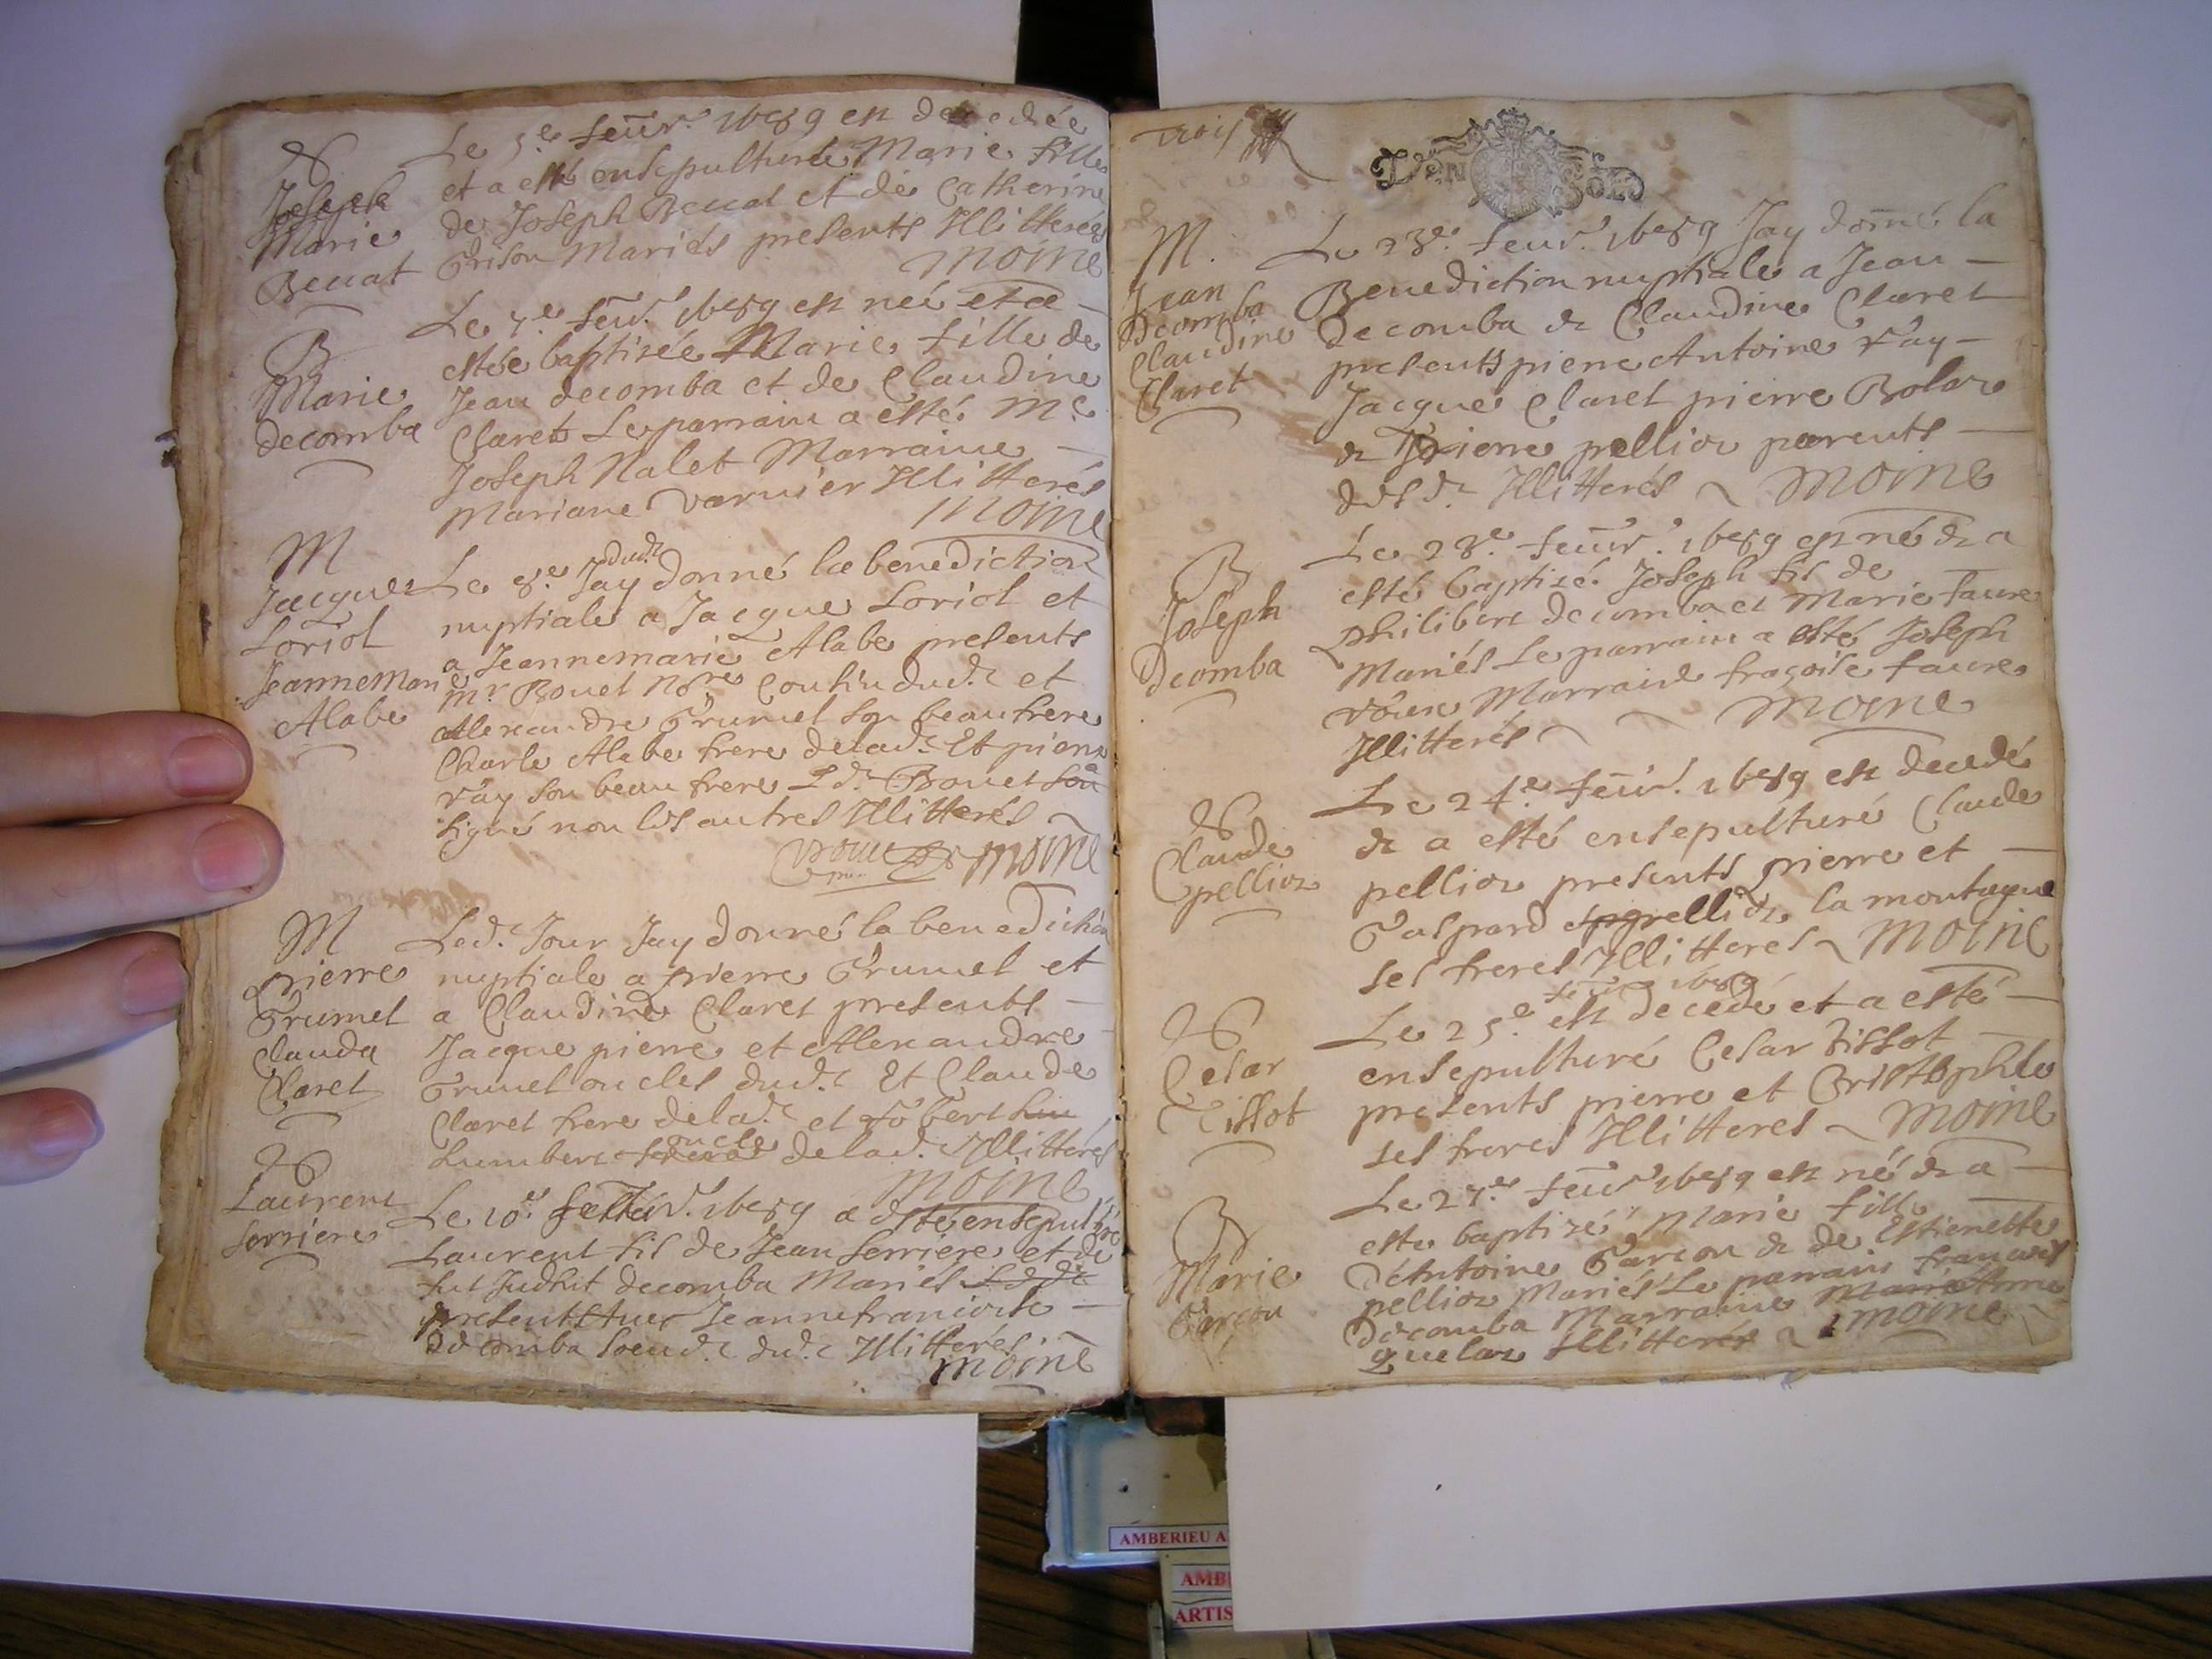 Le 5.e feur. 1689 est decedée
et a esté ensepulturée Marie fille
de Joseph Beuat et de Catherine
Grison Mariés presents Illitterés
Moine
Joseph
Marie
Beuat
Le 7.e feur. 1689 est neé et a
estée baptisée Marie fille de
Jean decomba et de Claudine
Claret Le parrain a esté M.e
Joseph Nalet Marraine
Mariane varnier Illitterés
Moine
B
Marie
decomba
Le 8.e dud. Jay donné la benediction
nuptiale a Jacque Loriol et
a Jeannemarie Alabe presents
Mr Bouet No.re Cousin dud. et
Alexandre Grumel son beaufrere
Charle Alabe frere delad. Et pierre
ray son beau frere Ld. Bouet a
signé non les autres Illitterés
Moine
M
Jacque
Loriol
Jeannemarie
Alabe
Led. Jour Jay donné la benediction
nuptiale a pierre Grumel et
a Claudine Claret presents
Jacque pierre et Alexandre
Grumel oncles dud. Et Claude
Claret frere delad. et
humbert oncle delad. Illitterés
Moine
M
pierre
Grumel
Clauda
Claret
Le 10.e 1689 a esté ensepulturé
Laurent fils de Jean Serriere et de
decomba Mariés
presents Jeannefrancoise
decomba dud. Illitterés
Moine
Laurent
Serriere
trois
DEN SOLS
Le 23.e feur. 1689 Jay donné la
Benediction nuptiale a Jean
Decomba & Claudine Claret
presents pierre Antoine ray
Jacque Claret pierre Bolar
& pierre pellior parents
desd. Illitterés Moine
M.
Jean
Decomba
Claudine
Claret
Le 28.e feur. 1689 est né & a
esté baptisé Joseph fils de
philibert decomba et Marie faure
Mariés Le parrain a esté Joseph
Marraine fraçoise faure
Illitterés Moine
B
Joseph
Decomba
Le 24.e feur. 1689 est decedé
& a esté ensepulturé Claude
pellior presents pierre et
Gaspard pellior la montagne
ses freres Illitteres Moine
Claude
pellior
feur 1689
Le 25.e est decedé et a esté
ensepulturé Cesar Tissot
presents pierre et Cristophle
ses freres Illitteres Moine
Cesar
Tissot
Le 27.e feur 1689 est né & a
esté baptizé Marie fille
d'Antoine Garcon & de Estienette
pellior Mariés Le parrain francois
decomba Marraine
Illitterés Moine
B
Marie
Garcon
AMBERIEU A
AMB
ARTIS